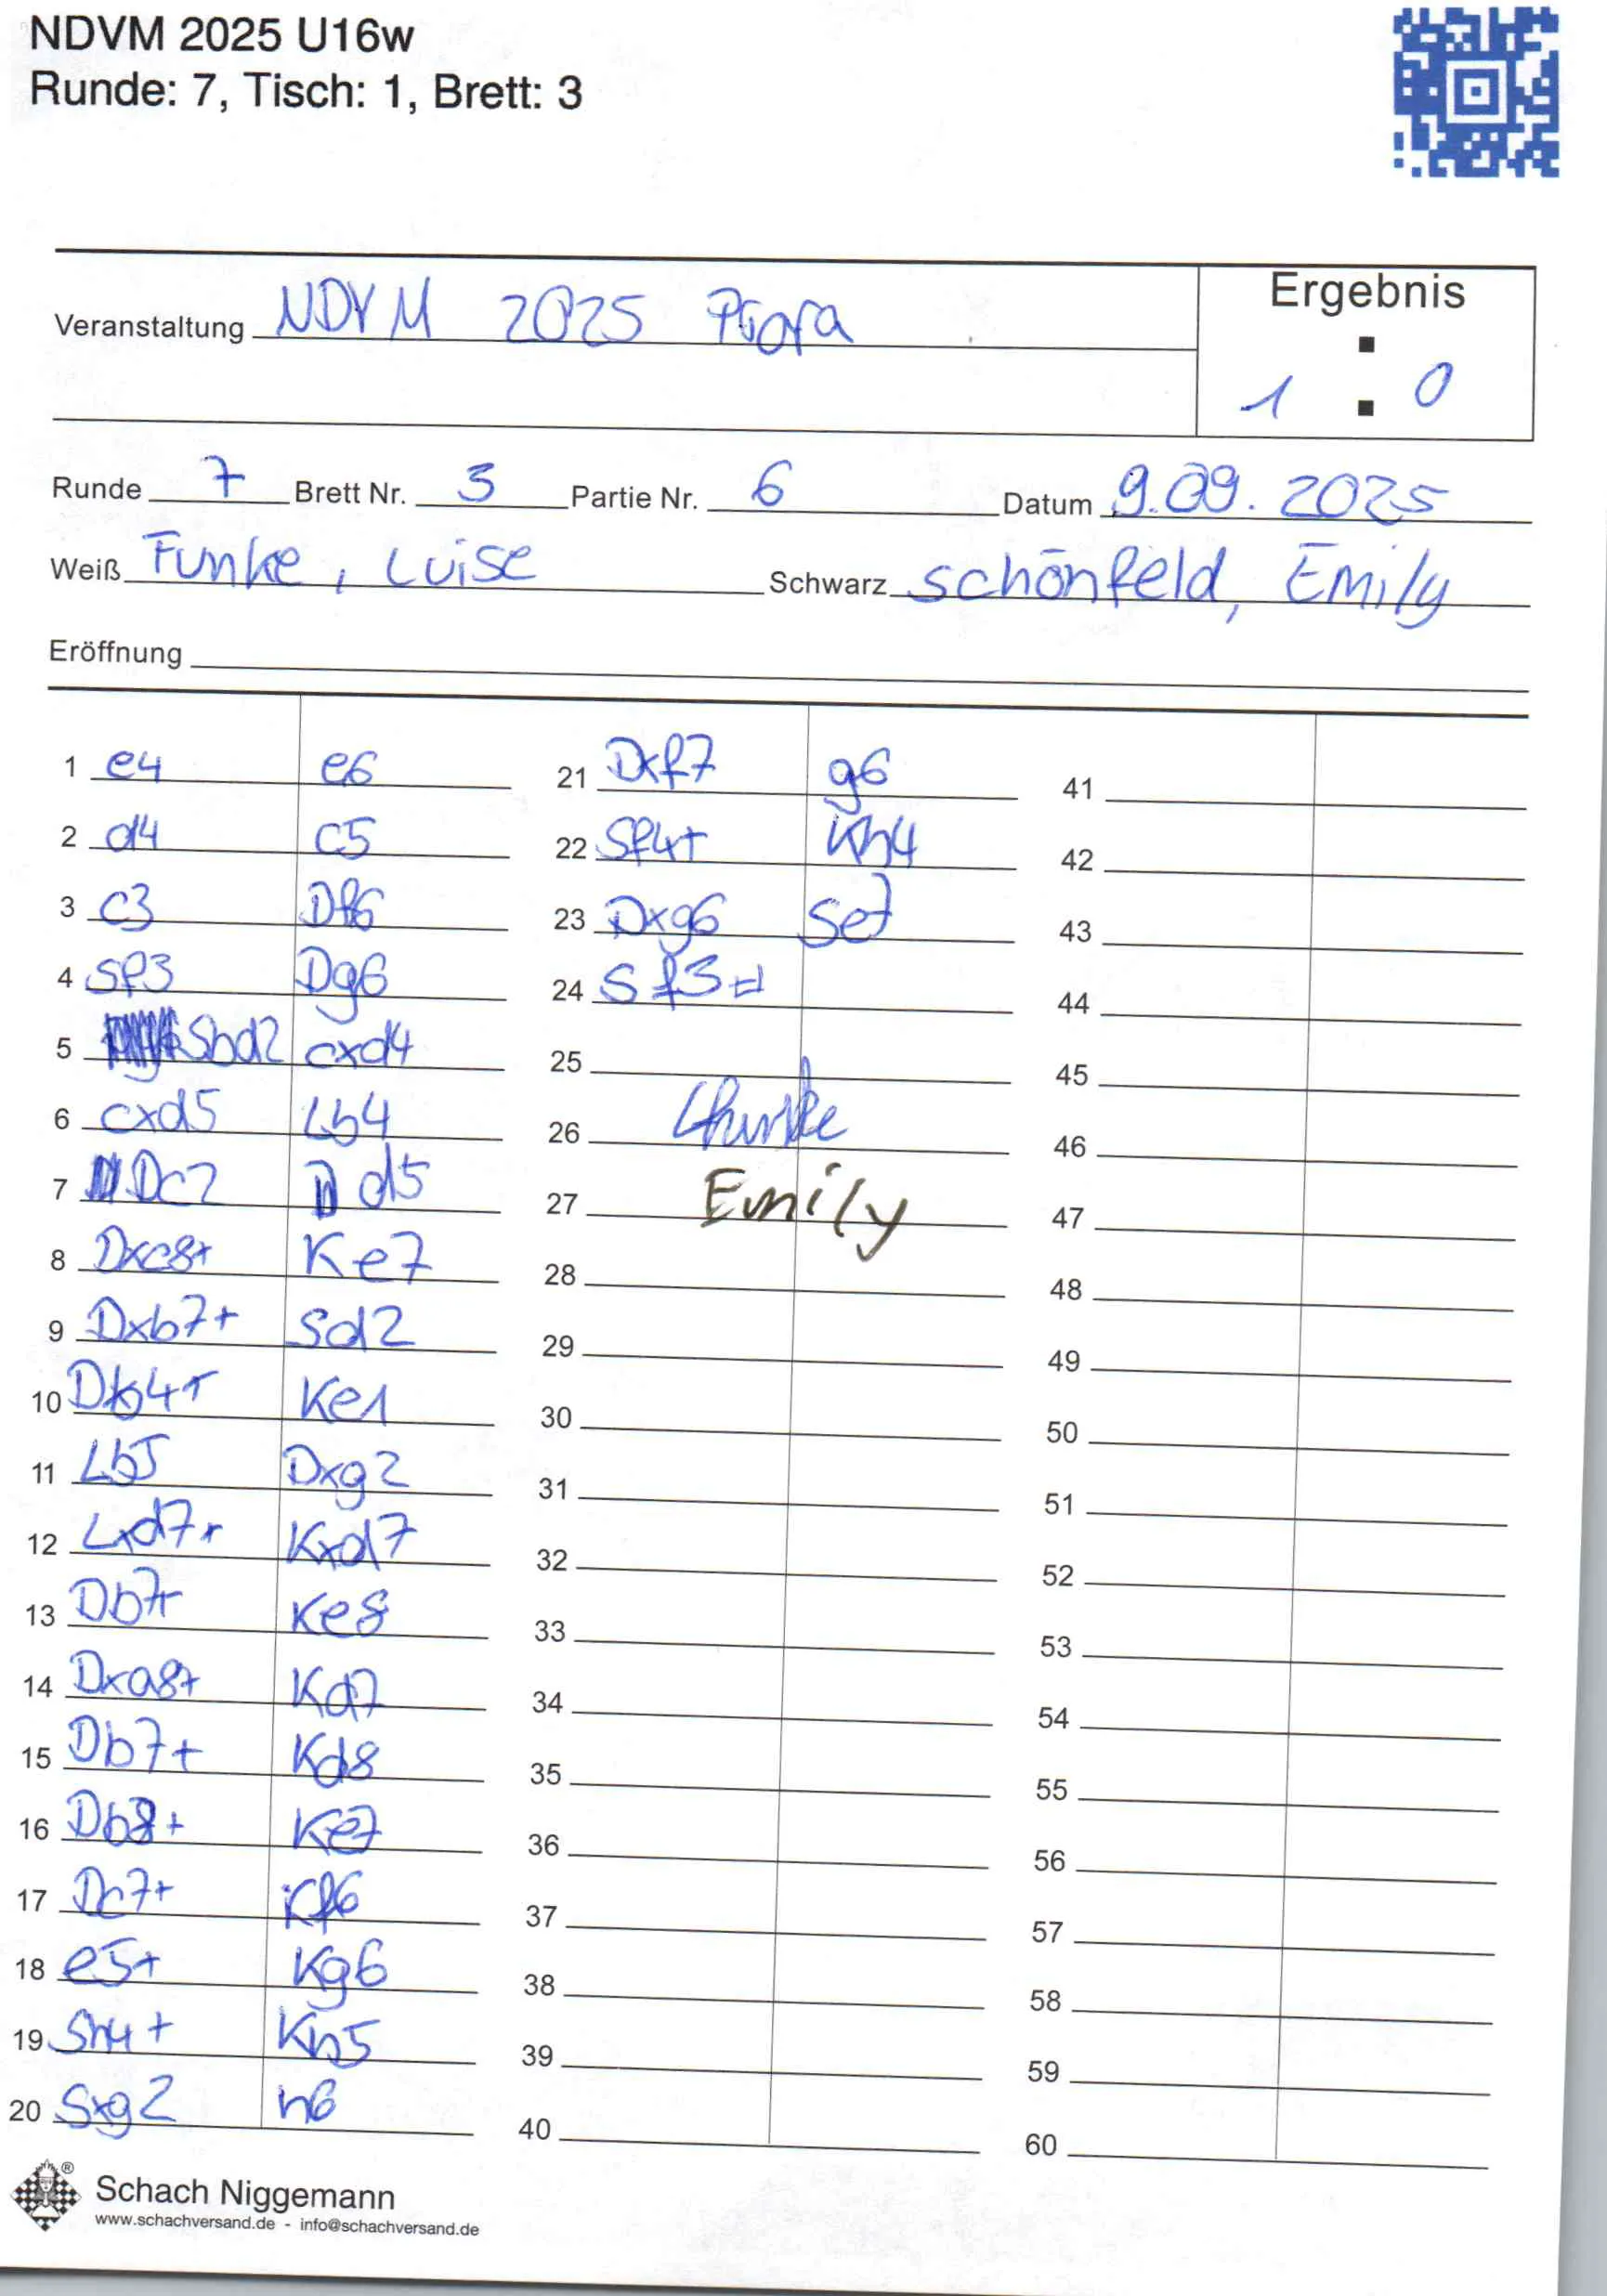 NDVM 2025 U16w
Runde: 7, Tisch: 1, Brett: 3
Veranstaltung NDVM 2025 Prora
Ergebnis
1 : 0
Runde 7 Brett Nr. 3 Partie Nr. 6 Datum 9.09.2025
Weiß Funke, Luise Schwarz Schönfeld, Emily
Eröffnung
1 e4 e6
2 d4 c5
3 c3 Df6
4 Sf3 Dg6
5 Sbd2 cxd4
6 cxd5 Lb4
7 Dc2 d5
8 Dxc8+ Ke7
9 Dxb7+ Sd2
10 Db4+ Ke1
11 Lb5 Dxg2
12 Lxd7+ Kxd7
13 Db7+ Ke8
14 Dxa8+ Kd7
15 Db7+ Kd8
16 Db8+ Ke7
17 Dc7+ Kf6
18 e5+ Kg6
19 Sh4+ Kh5
20 Sxg2 h6
21 Dxf7 g6
22 Sf4+ Kh4
23 Dxg6 Se7
24 Sf3#
25
26 LFunke
27 Emily
28
29
30
31
32
33
34
35
36
37
38
39
40
41
42
43
44
45
46
47
48
49
50
51
52
53
54
55
56
57
58
59
60
Schach Niggemann
www.schachversand.de - info@schachversand.de